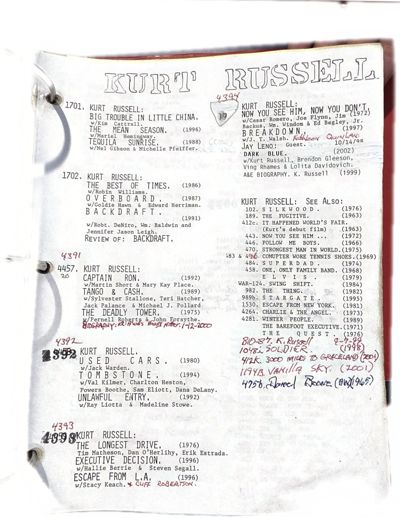 KURT RUSSELL
1701. KURT RUSSELL:
BIG TROUBLE IN LITTLE CHINA.
w/Kim Cattrall.
THE MEAN SEASON. (1996)
w/Mariel Hemingway.
TEQUILA SUNRISE. (1988)
w/Mel Gibson & Michelle Pfeiffer.
1702. KURT RUSSELL:
THE BEST OF TIMES. (1986)
w/Robin Williams.
OVERBOARD. (1987)
w/Goldie Hawn & Edward Herriman.
BACKDRAFT.
(1991)
w/Robt. DeNiro, Wm. Baldwin and
Jennifer Jason Leigh.
REVIEW OF: BACKDRAFT.
4391
4457. KURT RUSSELL:
20 CAPTAIN RON. (1992)
w/Martin Short & Mary Kay Place.
TANGO & CASH. (1989)
w/Sylvester Stallone, Teri Hatcher,
Jack Palance & Michael J. Pollard
THE DEADLY TOWER. (1975)
w/Pernell Roberts & John Forsythe.
4392
KURT RUSSELL.
USED CARS. (1980)
w/Jack Warden.
TOMBSTONE. (1994)
w/Val Kilmer, Charlton Heston,
Powers Boothe, Sam Eliott, Dana DeLany.
UNLAWFUL EATRY. (1992)
w/Ray Liotta & Madeline Stowe.
4393
KURT RUSSELL:
THE LONGEST DRIVE. (1976)
Tim Matheson, Dan O'Herlihy, Erik Extrada.
EXECUTIVE DECISION. (1996)
w/Hallie Berrie & Steven Segall.
ESCAPE FROM L.A. (1996)
w/Stacy Keach. & CLIFF ROBERTSON.
4394
KURT RUSSELL:
NOW YOU SEE HIM, NOW YOU DON'T.
w/Cesar Romero, Joe Flynn, Jim (1972)
Backus, Wm. Windom & Ed Begley, Jr.
BREAKDOWN. (1997)
w/J. T. Walsh. KATHLEEN QUINLAN
JAY LENO: Guest. 10/14/98
DARK BLUE. (2002)
w/Kurt Russell, Brendon Gleeson,
Ving Rhames & Lolita Davidovich.
A&E BIOGRAPHY. K. Russell (1999)
KURT RUSSELL: See Also:
102. SILKWOOD. (1976)
189. THE FUGITIVE. (1963)
412c. IT HAPPENED WORLD'S FAIR.
(Kurt's debut film) (1963)
443. NOW YOU SEE HIM ... (1972)
446. FOLLOW ME BOYS. (1966)
470. STRONGEST MAN IN WORLD. (1975)
COMPUTER WORE TENNIS SHOES. (1969)
484. SUPERDAD. (1974)
458. ONE, ONLY FAMILY BAND. (1968)
ELVIS. (1979)
WAR-124. SWING SHIFT. (1984)
982. THE THING. (1982)
989. STARGATE. (1995)
1530. ESCAPE FROM NEW YORK. (1981)
4264. CHARLIE & THE ANGEL. (1973)
4281. WINTER PEOPLE. (1989)
THE BAREFOOT EXECUTIVE.
THE QUEST. (1976)
SOLDIER. (1998)
412K. 3000 MILES TO GRACELAND (2001)
1194B VANILLA SKY. (2001)